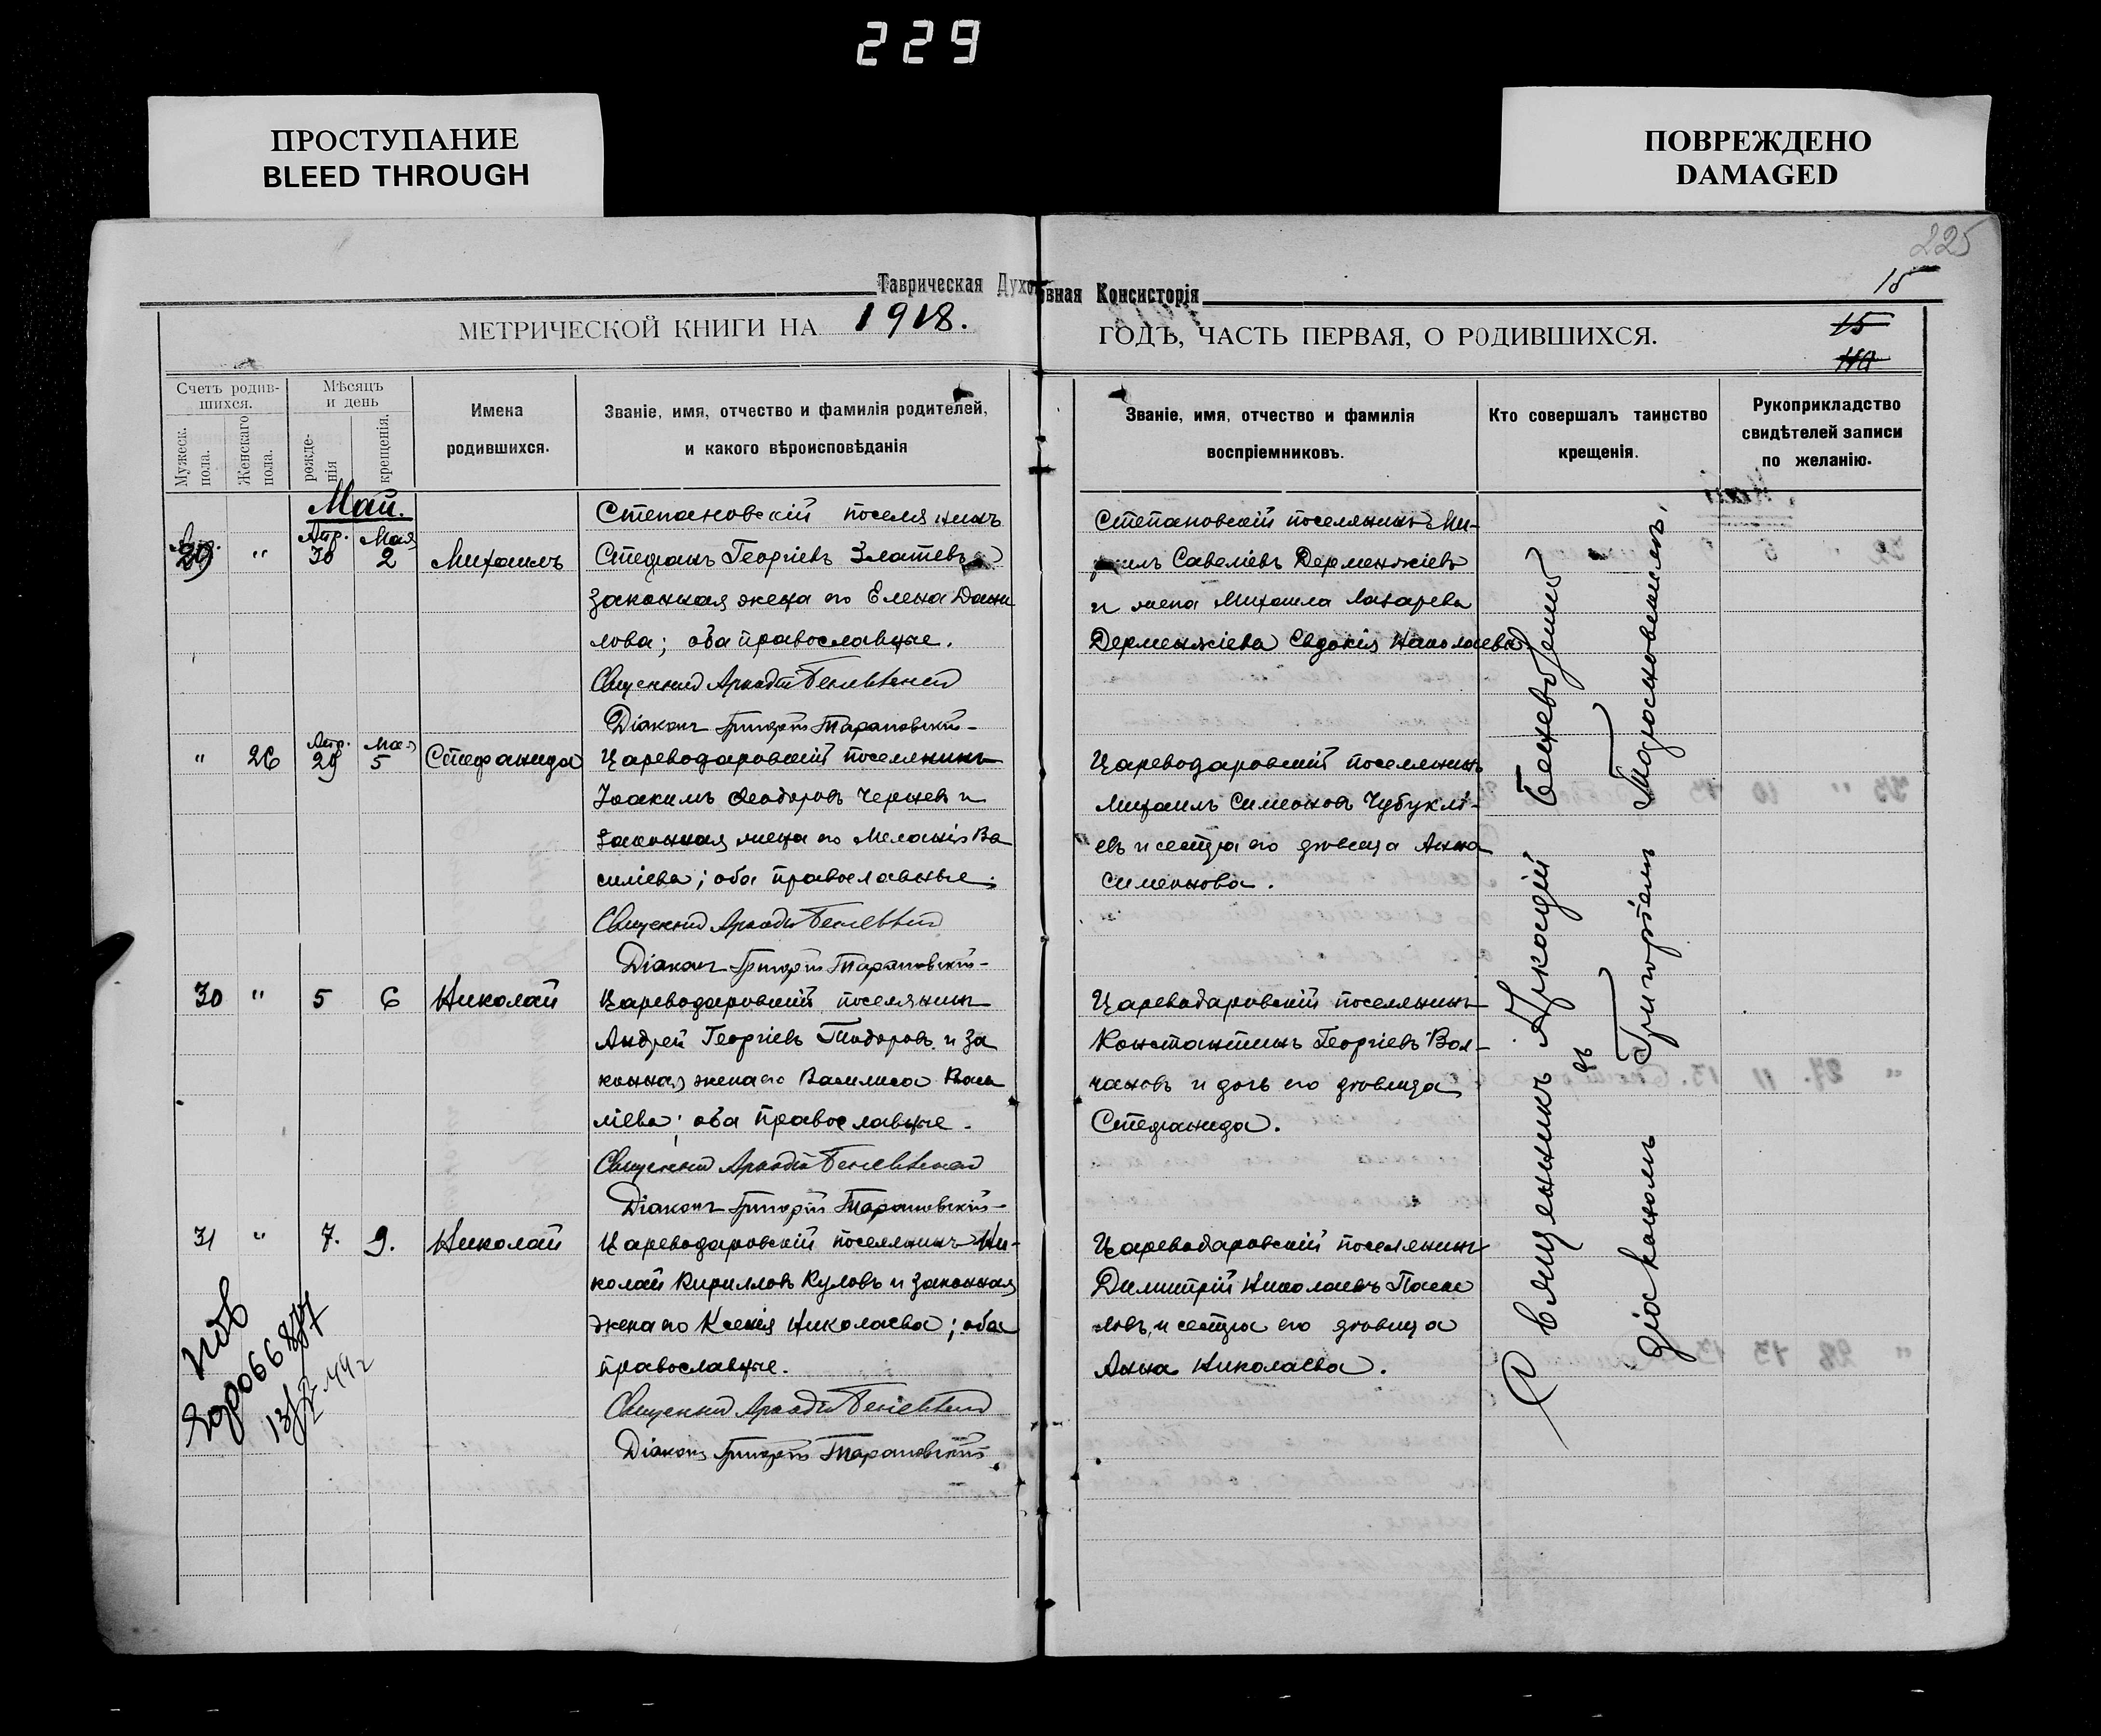 229
ПРОСТУПАНИЕ
BLEED THROUGH
ПОВРЕЖДЕНО
DAMAGED
225
Таврическая Духовная Консисторія
15
МЕТРИЧЕСКОЙ КНИГИ НА 1918.
ГОДЪ, ЧАСТЬ ПЕРВАЯ, О РОДИВШИХСЯ.
15
Счетъ родив-
шихся.
Мужеск.
пола.
Женскаго
пола.
Мѣсяцъ
и день
рожде-
нія
крещенія.
Имена
родившихся.
Званіе, имя, отчество и фамилія родителей,
и какого вѣроисповѣданія
Званіе, имя, отчество и фамилія
воспріемниковъ.
Кто совершалъ таинство
крещенія.
Рукоприкладство
свидѣтелей записи
по желанію.
Май.
29 " Апр. 30 Мая 2 Михаилъ
Степановскій поселянинъ
Стефанъ Георгіевъ Златевъ и
законная жена его Елена Дани
лова; оба православные.
Священникъ Аркадій
Діаконъ Григорій
Степановскій поселянинъ Ми-
хаилъ Савеліевъ Дерменжіевъ
и жена Михаила Лазарева
Дерменжіева Евдокія Николаева
" 26 Апр. 29 Мая 5 Стефанида
Цареводаровскій поселянинъ
Іоакимъ Ѳеодоровъ Чернев и
законная жена его Меланія Ва
силіева; оба православные.
Священникъ Аркадій
Діаконъ Григорій
Цареводаровскій поселянинъ
Михаилъ Симеоновъ Чубуклі-
евъ и сестра его дѣвица Анна
Симеонова.
30 " 5 6 Николай
Цареводаровскій поселянинъ
Андрей Георгіевъ Тодоровъ и за
конная жена его Василиса Васи
ліева; оба православные.
Священникъ Аркадій
Діаконъ Григорій
Цареводаровскій поселянинъ
Константинъ Георгіевъ Вол-
чановъ и дочь его дѣвица
Стефанида.
31 " 7. 9. Николай
Цареводаровскій поселянинъ Ни-
колай Кирилловъ Куловъ и законная
жена его Ксенія Николаева; оба
православные.
Священникъ Аркадій
Діаконъ Григорій
Цареводаровскій поселянинъ
Димитрій Николаевъ Паска
ловъ и сестра его дѣвица
Анна Николаева.
Священникъ Аркадій
съ
діакономъ Григоріемъ